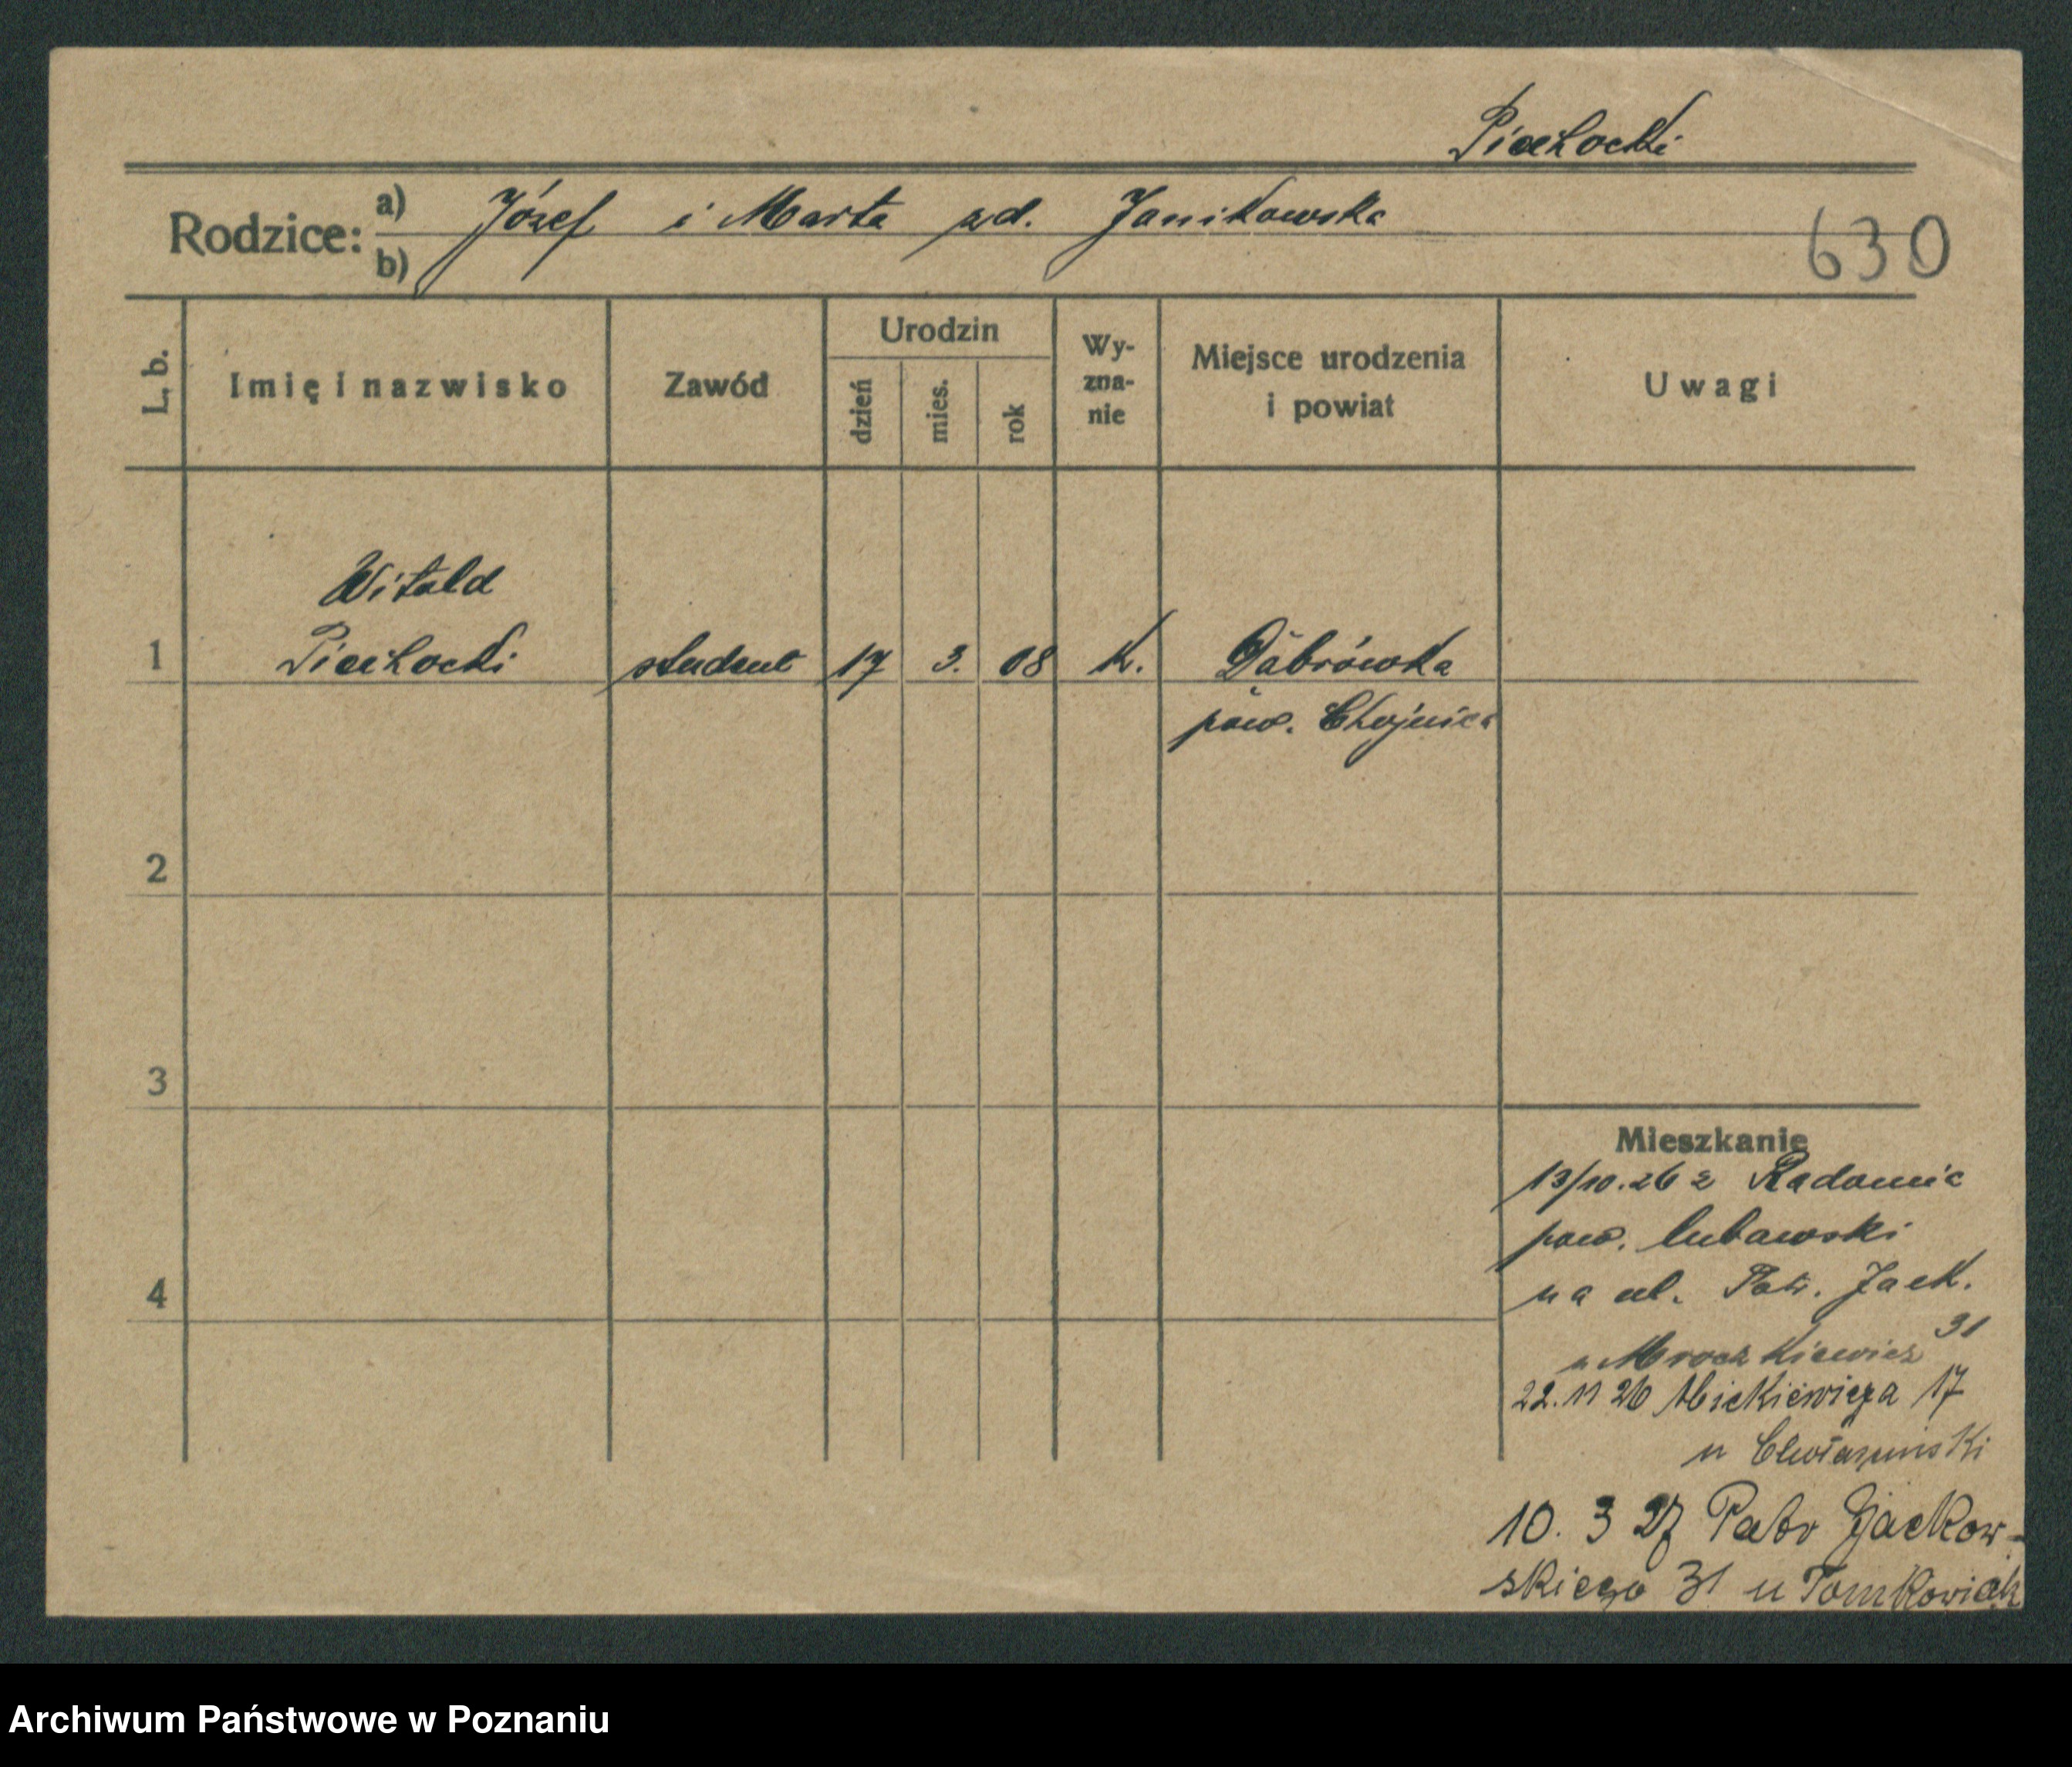 Piechocki
Rodzice: a) Józef i Marta zd. Janikowska
b)
630
L. b.
Imię i nazwisko
Zawód
Urodzin
dzień
mies.
rok
Wy-
zna-
nie
Miejsce urodzenia
i powiat
Uwagi
Witold
1 Piechocki student 17 3. 08 k. Dąbrówka
pow. Chojnice
2
3
4
Mieszkanie
13/10.26 z Radomic
pow. lubawski
na ul. Patr. Jack.
31
u Mroczkiewicz
22.11 26 Mickiewicza 17
u
10. 3 27 Patr Jackow-
skiego 31 u Tomkowiak
Archiwum Państwowe w Poznaniu